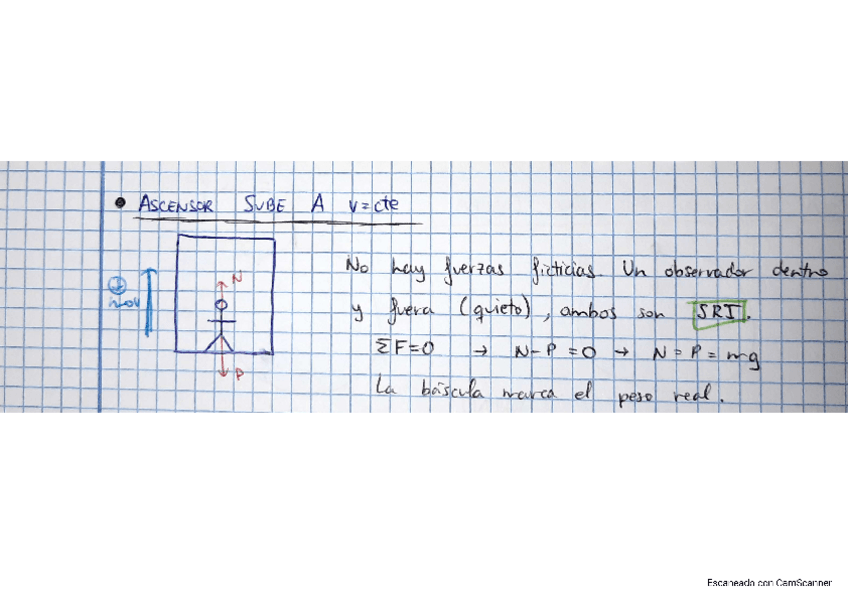 • ASCENSOR SUBE A v=cte
⊕
mov
N
P
No hay fuerzas ficticias. Un observador dentro
y fuera (quieto), ambos son SRI.
ΣF=0 → N-P=0 → N=P=mg
La báscula marca el peso real.
Escaneado con CamScanner